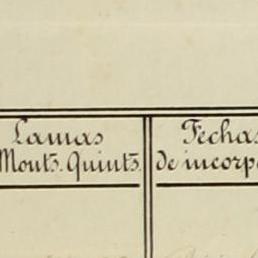 Lamas
Monts. Quints.
Fechas
de incorp